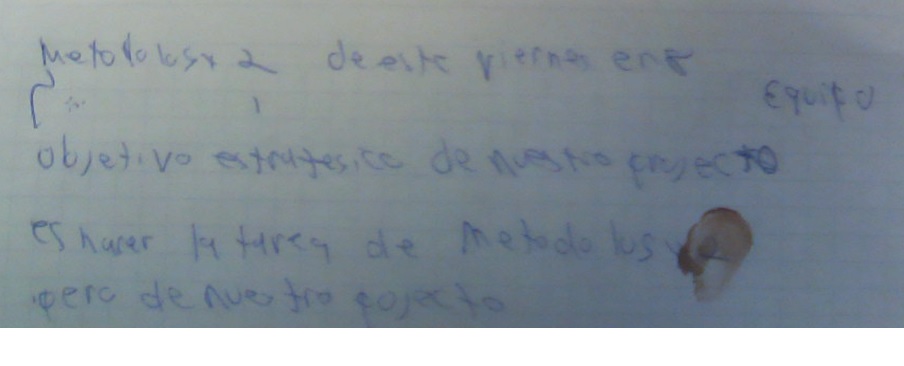 Metodolosx 2 de este viernes en 8
Equipo
objetivo estratesico de nuestro proyecto
es hacer la tarea de Metodolos
pero de nuestro poyecto